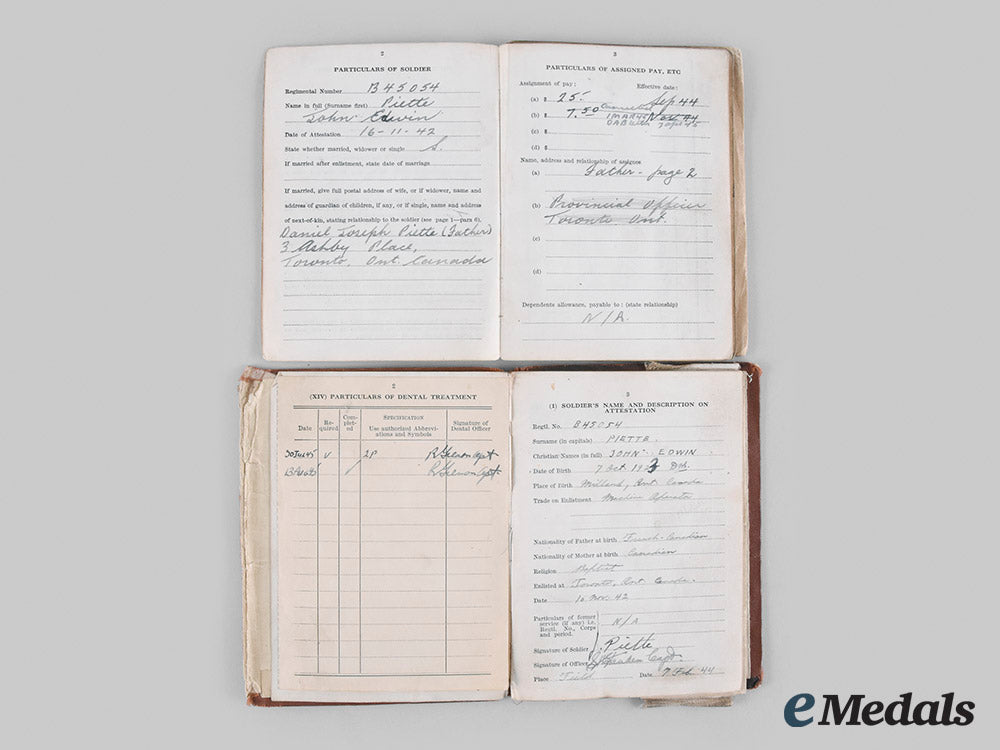 2
PARTICULARS OF SOLDIER
Regimental Number B45054
Name in full (Surname first) Piette
John Edwin
Date of Attestation 16-11-42
State whether married, widower or single S.
If married after enlistment, state date of marriage
If married, give full postal address of wife, or if widower, name and
address of guardian of children, if any, or if single, name and address
of next-of-kin, stating relationship to the soldier (see page 1—para 6).
Daniel Joseph Piette (Father)
3 Ashby Place,
Toronto, Ont. Canada
3
PARTICULARS OF ASSIGNED PAY, ETC
Assignment of pay: Effective date:
(a) $ 25.- Sep 44
(b) $ 7.50 Cancelled 1 MAR 45 Nov 44
(c) $
(d) $
Name, address and relationship of assignee
(a) Father - page 2
(b) Provincial Officer
Toronto Ont.
(c)
(d)
Dependents allowance, payable to: (state relationship)
N/A.
2
(XIV) PARTICULARS OF DENTAL TREATMENT
Date Required Completed SPECIFICATION Use authorized Abbreviations and Symbols Signature of Dental Officer
30 Jul 45 V 2P
3
(I) SOLDIER'S NAME AND DESCRIPTION ON
ATTESTATION
Regtl. No. B45054
Surname (in capitals) PIETTE.
Christian Names (in full) JOHN EDWIN
Date of Birth 7 Oct 1923
Place of Birth Midland, Ont Canada
Trade on Enlistment Machine Operator
Nationality of Father at birth French-Canadian
Nationality of Mother at birth Canadian
Religion Baptist
Enlisted at Toronto, Ont Canada.
Date 16 Nov. 42
Particulars of former
service (if any) i.e.
Regtl. No., Corps
and period. N/A
Signature of Soldier Piette
Signature of Officer Capt.
Place Field Date 7 Feb 44
eMedals